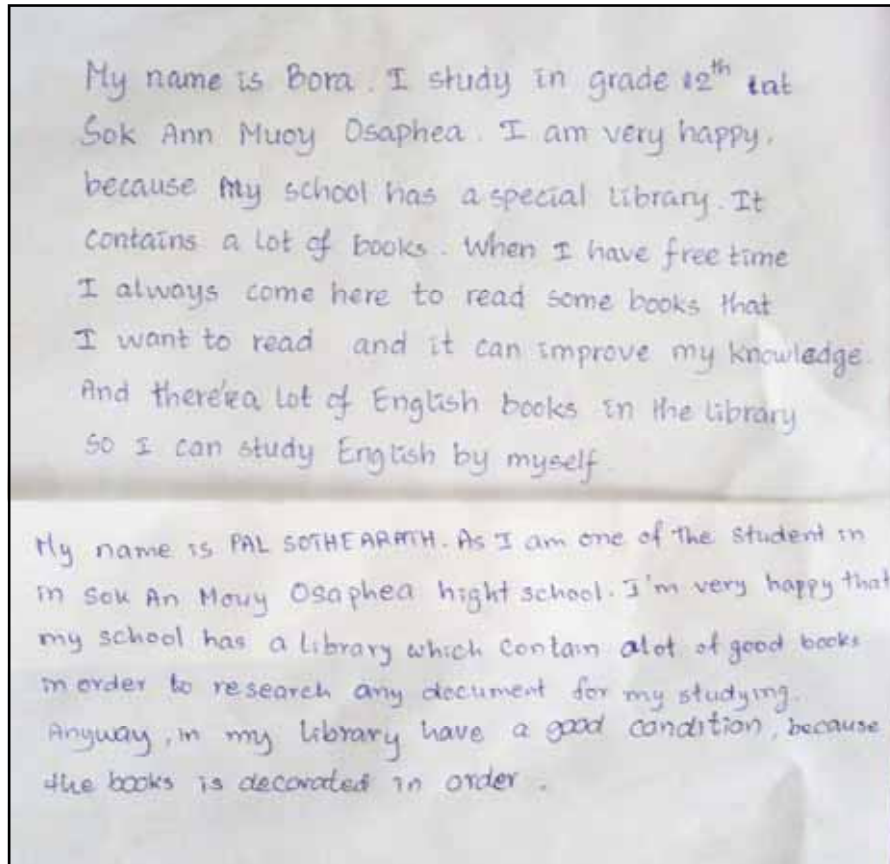 My name is Bora. I study in grade 12th at
Sok Ann Muoy Osaphea. I am very happy,
because my school has a special library. It
contains a lot of books. When I have free time
I always come here to read some books that
I want to read and it can improve my knowledge.
And there're a lot of English books in the library
so I can study English by myself
My name is PAL SOTHEARATH. As I am one of the student in
in Sok An Mouy Osaphea hight school. I'm very happy that
my school has a library which contain alot of good books
in order to research any document for my studying.
Anyway, in my library have a good condition, because
the books is decorated in order.